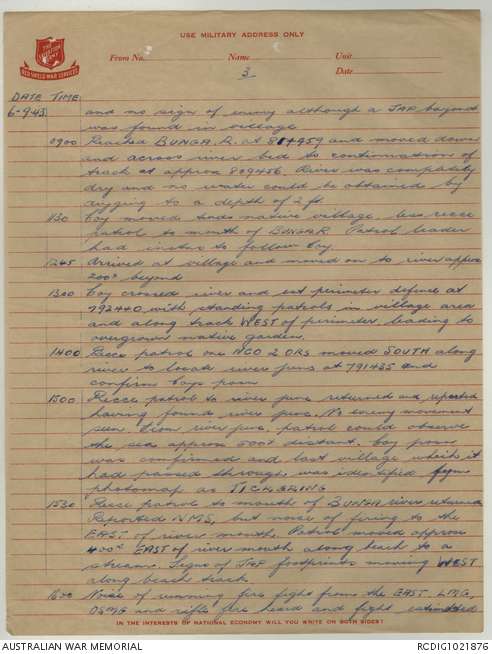 USE MILITARY ADDRESS ONLY
THE SALVATION ARMY
RED SHIELD WAR SERVICES
From No. Name Unit
3 Date
DATE TIME
6-9-43 and no sign of enemy although a JAP bayonet
was found in village
0900 Reached BUNGA R. at 814959 and moved down
and across river bed to continuation of
track at approx 809456. River was completely
dry and no water could be obtained by
digging to a depth of 2 ft
1130 Coy moved twds native village, less recce
patrol to mouth of BUNGA R. Patrol leader
had instns to follow coy.
1245 Arrived at village and moved on to river approx
200x beyond
1300 Coy crossed river and set perimeter defence at
792440 with standing patrols in village area
and along track WEST of perimeter leading to
overgrown native garden.
1400 Recce patrol one NCO 2 ORS moved SOUTH along
river to locate river junc at 791435 and
confirm coys posn
1500 Recce patrol to river junc returned and reported
having found river junc. No enemy movement
seen. From river junc, patrol could observe
the sea approx 500x distant. Coy posn
was confirmed and last village which it
had passed through, was identified from
photomap as
1530 Recce patrol to mouth of BUNGA river returned
Reported NMS, but noise of firing to the
EAST of river mouth. Patrol moved approx
400x EAST of river mouth along beach to a
stream. Signs of JAP footprints moving WEST
along beach track
1600 Noise of running fire fight from the EAST. LMG,
OSMG and rifle fire heard and fight extended
IN THE INTERESTS OF NATIONAL ECONOMY WILL YOU WRITE ON BOTH SIDES?
AUSTRALIAN WAR MEMORIAL
RCDIG1021876